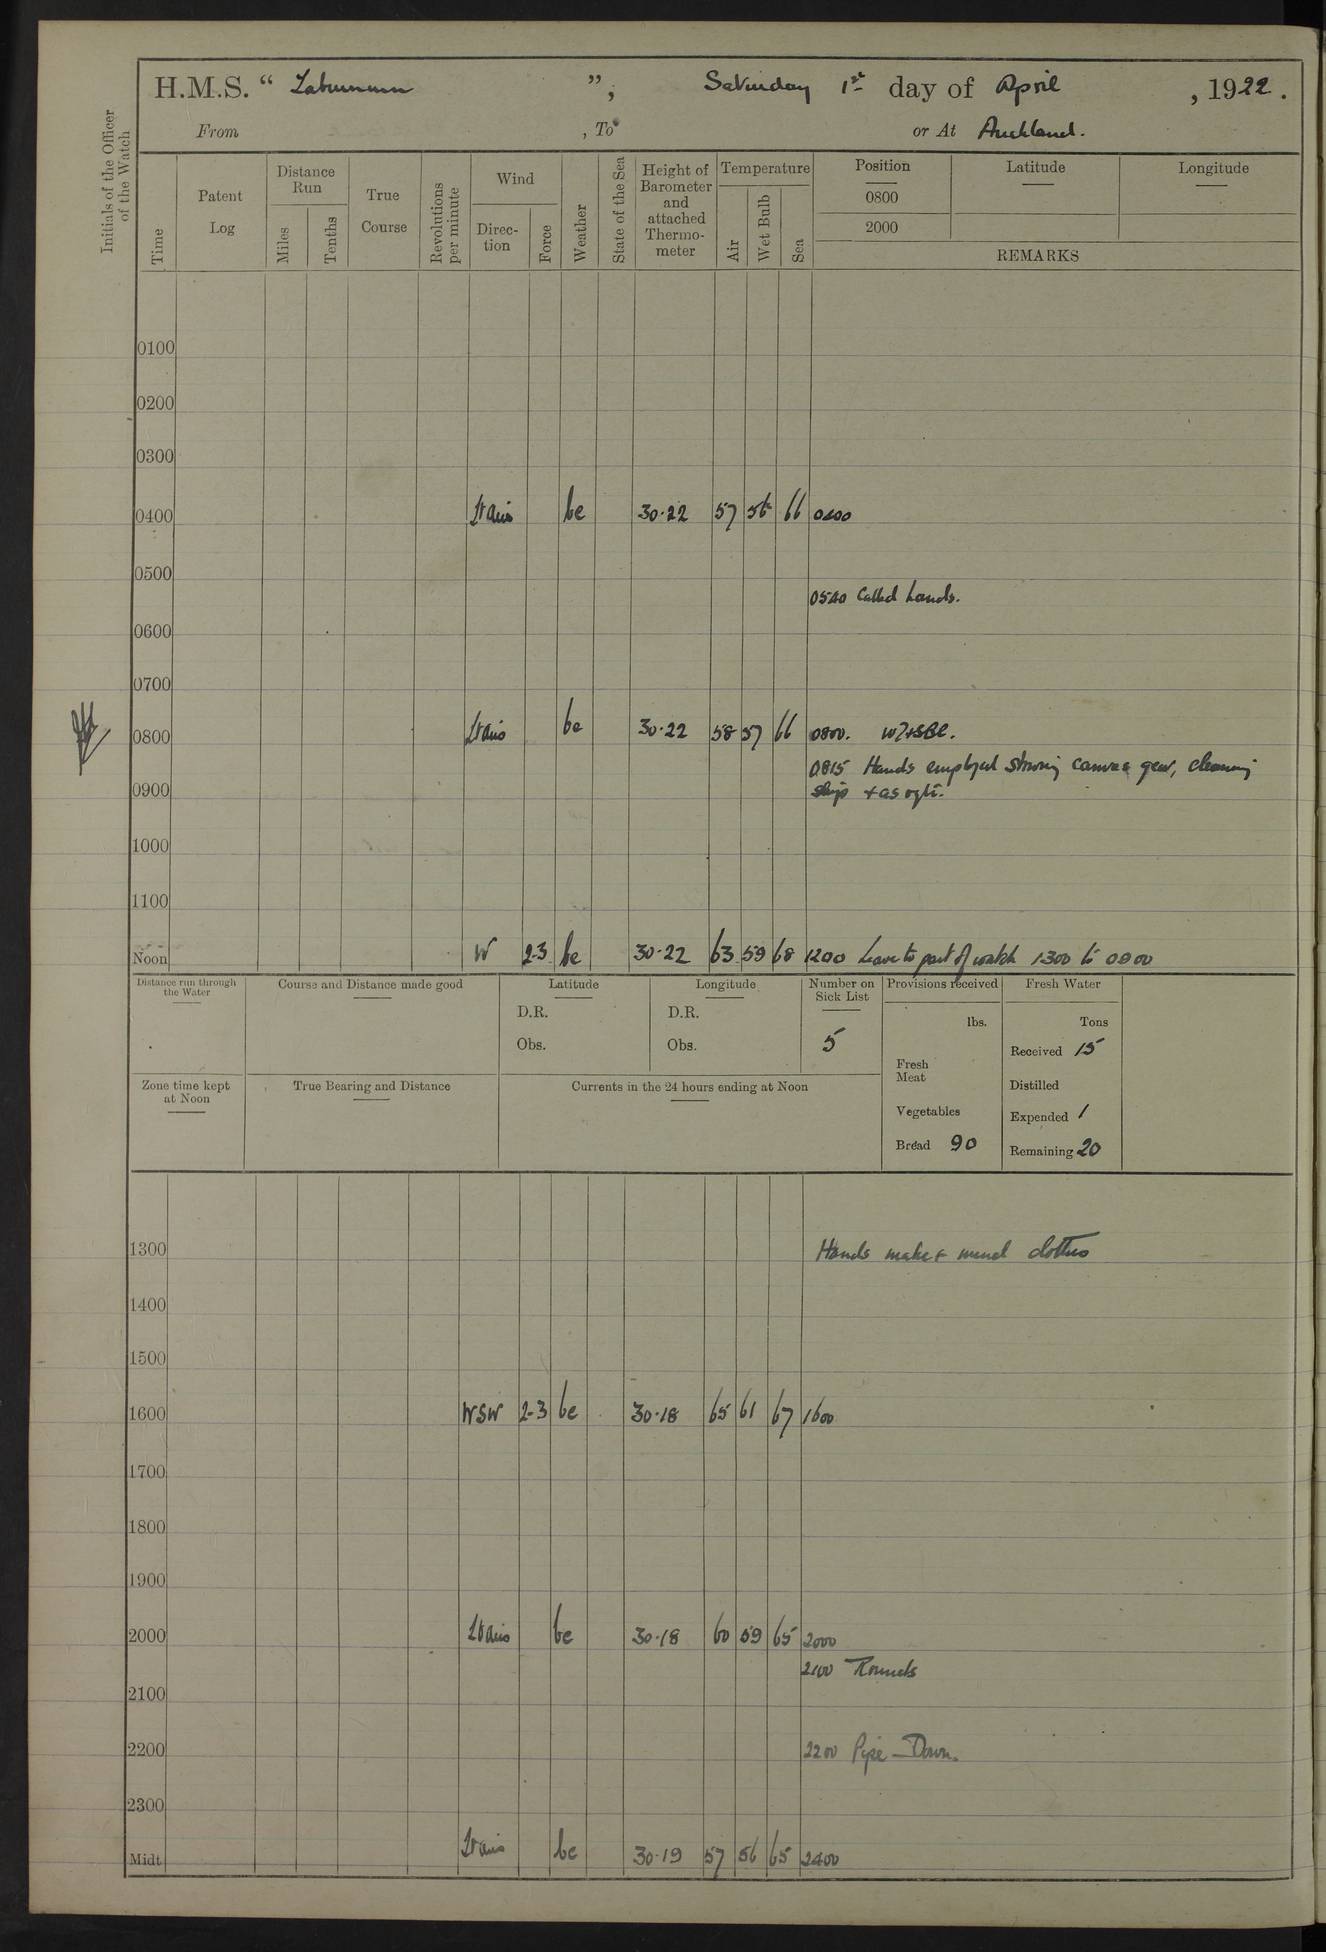 H.M.S. “ Laburnum ”, Saturday 1st day of April , 1922.
From , To or At Auckland.
Initials of the Officer of the Watch
Time
Patent Log
Distance Run
Miles
Tenths
True Course
Revolutions per minute
Wind
Direc-tion
Force
Weather
State of the Sea
Height of Barometer and attached Thermo-meter
Temperature
Air
Wet Bulb
Sea
Position
0800
2000
Latitude
Longitude
REMARKS
0100
0200
0300
0400 Lt airs bc 30·22 57 56 66 0400
0500
0540 Called hands.
0600
0700
0800 Lt airs bc 30·22 58 57 66 0800.
0815 Hands employed stowing canvas gear, cleaning
ship + as reqte.
0900
1000
1100
Noon W 2-3 bc 30·22 63 59 68 1200 Leave to part of watch 1300 to 0800
Distance run through the Water
Course and Distance made good
Latitude
D.R.
Obs.
Longitude
D.R.
Obs.
Number on Sick List
5
Provisions received
lbs.
Fresh Meat
Vegetables
Bread 90
Fresh Water
Tons
Received 15
Distilled
Expended 1
Remaining 20
Zone time kept at Noon
True Bearing and Distance
Currents in the 24 hours ending at Noon
1300 Hands make + mend clothes
1400
1500
1600 WSW 2-3 bc 30·18 65 61 67 1600
1700
1800
1900
2000 Lt airs bc 30·18 60 59 65 2000
2100 Rounds
2100
2200 2200 Pipe Down.
2300
Midt. Lt airs bc 30·19 57 56 65 2400